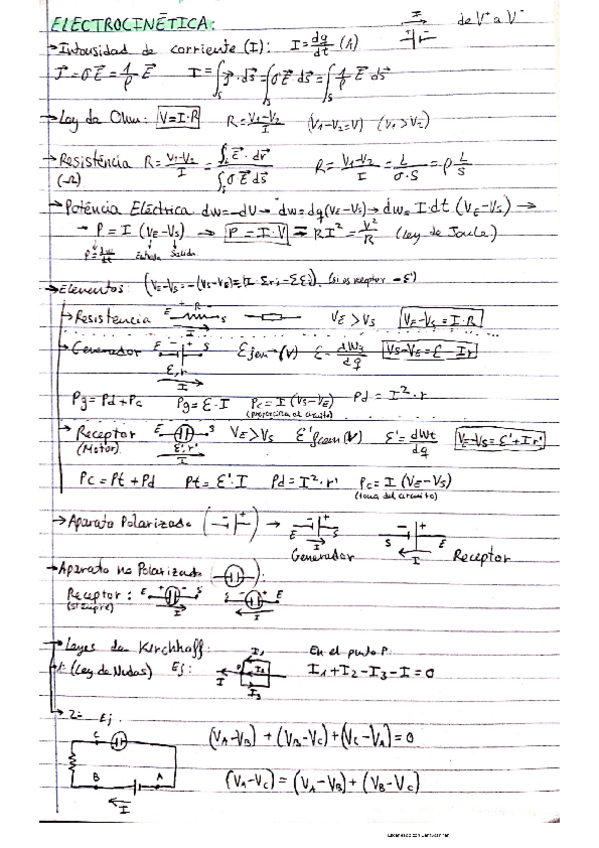 ELECTROCINÉTICA: I de V⁺ a V⁻
→ Intensidad de corriente (I): I = dq/dt (A)
J⃗ = σE⃗ = 1/ρ E⃗ I = ∫s J⃗·ds⃗ = ∫s σE⃗ ds⃗ = ∫s 1/ρ E⃗ ds⃗
→ Ley de Ohm: V=I·R R = V₁-V₂/I (V₁-V₂=V) (V₁>V₂)
→ Resistència R = V₁-V₂/I = ∫L E⃗·dr⃗ / ∫s σE⃗ ds⃗ R = V₁-V₂/I = L/σ·S = ρ L/S
(Ω)
→ Potència Elèctrica dw=-dU → dw=dq(VE-VS) → dw=I·dt (VE-VS) →
→ P = I (VE-VS) → P=I·V = RI² = V²/R (Ley de Joule)
P=dw/dt Entrada Salida
→ Elementos: (VE-VS=-(VS-VE)=(I·Σri-Σεi). (si es receptor -ε')
→ Resistencia E + R - S VE>VS VE-VS=I·R
I
→ Generador E - + S εgen→(V) ε=dWg/dq VS-VE=ε-Ir
ε,r
I
Pg=Pd+Pc Pg=ε·I Pc=I(VS-VE) Pd=I²·r
(proporciona al circuito)
→ Receptor E + - S VE>VS ε'fcem(V) ε'=dWt/dq VE-VS=ε'+Ir'
(Motor) ε',r'
I
Pc=Pt+Pd Pt=ε'·I Pd=I²·r' Pc=I(VE-VS)
(toma del circuito)
→ Aparato Polarizado (- +) → E - + S I S - + E I
Generador Receptor
→ Aparato no Polarizado ( ):
Receptor: E + - S S - + E
(siempre) I I
→ Leyes de Kirchhoff: I₁ En el punto P.
1: (Ley de Nudos) Ej: I P I₂ I₃ I₁+I₂-I₃-I=0
→ 2: Ej.
C (VA-VB)+(VB-VC)+(VC-VA)=0
B A (VA-VC)=(VA-VB)+(VB-VC)
I